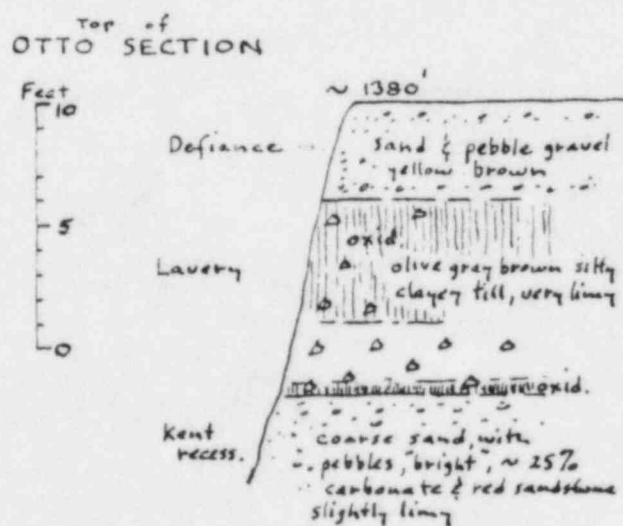 Top of
OTTO SECTION
Feet
10
5
0
~ 1380'
Defiance
sand & pebble gravel
yellow brown
Lavery
oxid.
olive gray brown silty
clayey till, very limy
oxid.
Kent
recess.
coarse sand, with
pebbles, "bright", ~ 25%
carbonate & red sandstone
slightly limy